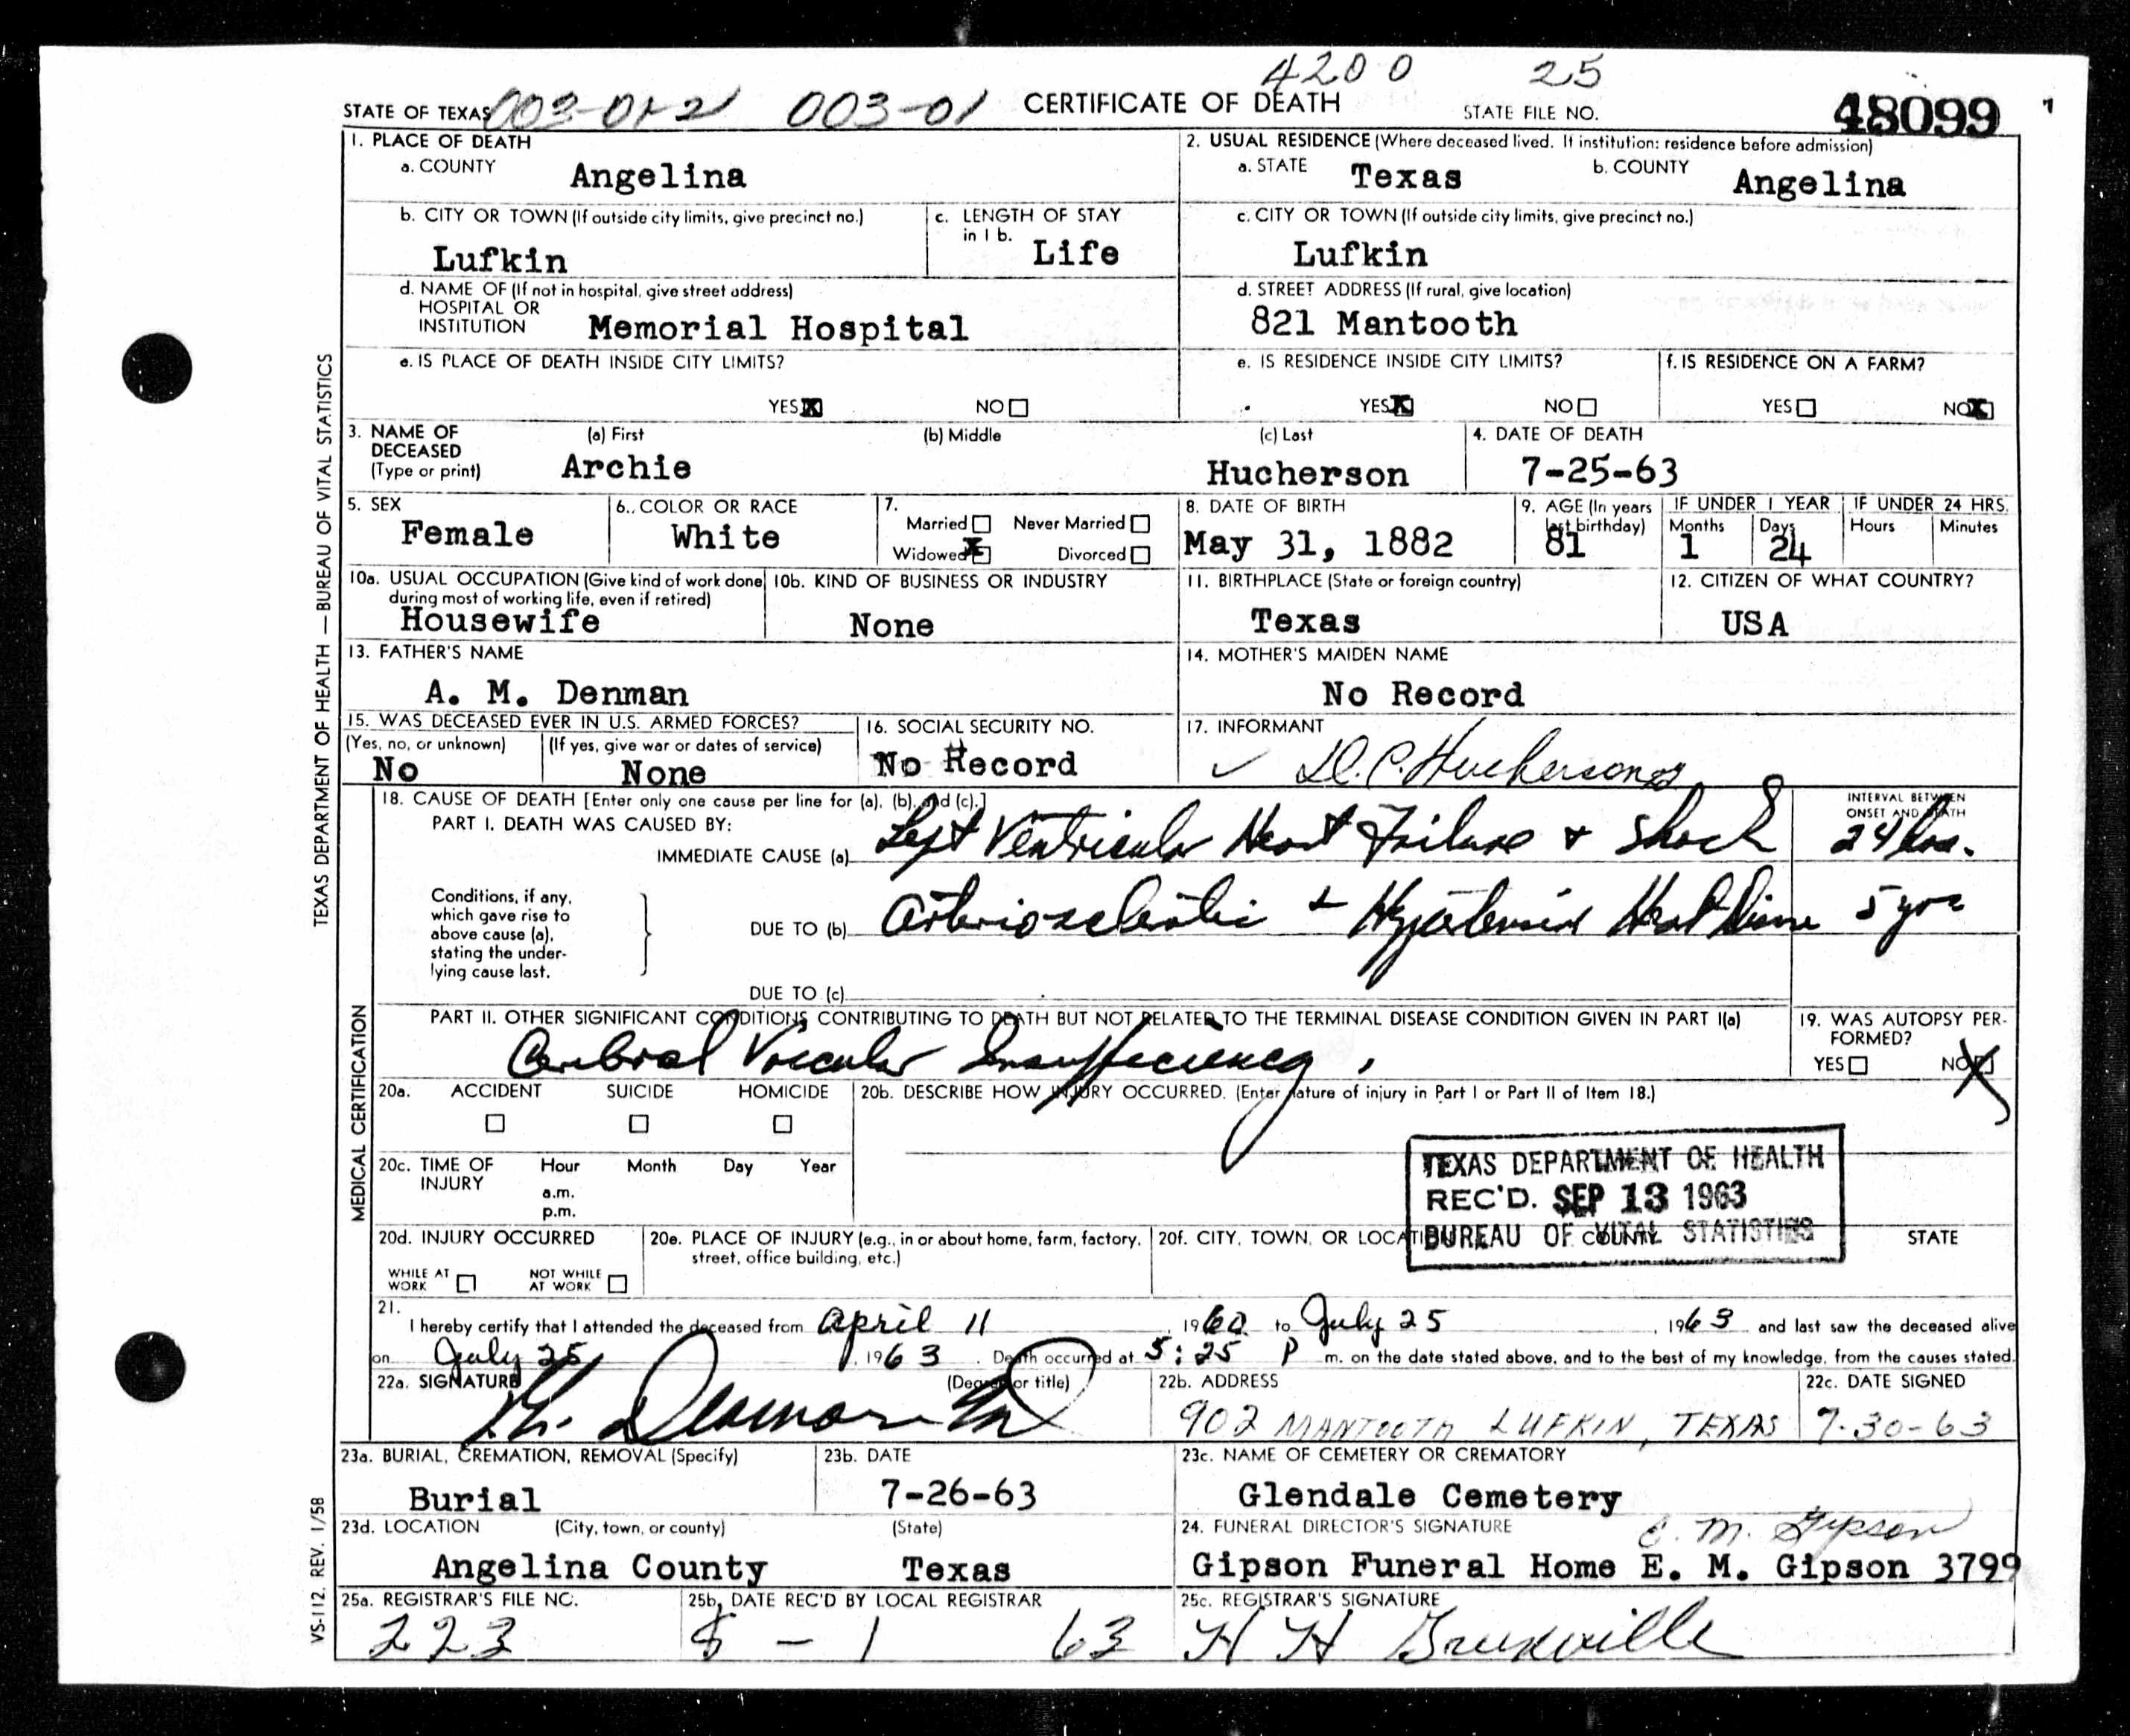 4200 25
STATE OF TEXAS 003-01-2 003-01 CERTIFICATE OF DEATH STATE FILE NO. 48099
1. PLACE OF DEATH
a. COUNTY Angelina
2. USUAL RESIDENCE (Where deceased lived. If institution: residence before admission)
a. STATE Texas b. COUNTY Angelina
b. CITY OR TOWN (If outside city limits, give precinct no.)
Lufkin
c. LENGTH OF STAY
in 1 b. Life
c. CITY OR TOWN (If outside city limits, give precinct no.)
Lufkin
d. NAME OF (If not in hospital, give street address)
HOSPITAL OR
INSTITUTION Memorial Hospital
d. STREET ADDRESS (If rural, give location)
821 Mantooth
e. IS PLACE OF DEATH INSIDE CITY LIMITS?
YES X NO
e. IS RESIDENCE INSIDE CITY LIMITS?
YES X NO
f. IS RESIDENCE ON A FARM?
YES NO X
3. NAME OF
DECEASED
(Type or print)
(a) First (b) Middle (c) Last
Archie Hucherson
4. DATE OF DEATH
7-25-63
5. SEX
Female
6. COLOR OR RACE
White
7.
Married Never Married
Widowed X Divorced
8. DATE OF BIRTH
May 31, 1882
9. AGE (In years
last birthday)
81
IF UNDER 1 YEAR
Months Days
1 24
IF UNDER 24 HRS.
Hours Minutes
10a. USUAL OCCUPATION (Give kind of work done
during most of working life, even if retired)
Housewife
10b. KIND OF BUSINESS OR INDUSTRY
None
11. BIRTHPLACE (State or foreign country)
Texas
12. CITIZEN OF WHAT COUNTRY?
USA
13. FATHER'S NAME
A. M. Denman
14. MOTHER'S MAIDEN NAME
No Record
15. WAS DECEASED EVER IN U.S. ARMED FORCES?
(Yes, no, or unknown) (If yes, give war or dates of service)
No None
16. SOCIAL SECURITY NO.
No Record
17. INFORMANT
D.C. Hucherson
18. CAUSE OF DEATH [Enter only one cause per line for (a), (b), and (c).]
PART I. DEATH WAS CAUSED BY:
IMMEDIATE CAUSE (a) Left Ventricular Heart Failure + Shock
INTERVAL BETWEEN
ONSET AND DEATH
24 hrs.
Conditions, if any,
which gave rise to
above cause (a),
stating the under-
lying cause last.
DUE TO (b) Arteriosclerotic + Hypertensive Heart Disease 5 yrs
DUE TO (c)
PART II. OTHER SIGNIFICANT CONDITIONS CONTRIBUTING TO DEATH BUT NOT RELATED TO THE TERMINAL DISEASE CONDITION GIVEN IN PART I(a)
Cerebral Vascular Insufficiency.
19. WAS AUTOPSY PER-
FORMED?
YES NO X
20a. ACCIDENT SUICIDE HOMICIDE
20b. DESCRIBE HOW INJURY OCCURRED. (Enter nature of injury in Part I or Part II of Item 18.)
20c. TIME OF
INJURY
Hour Month Day Year
a.m.
p.m.
TEXAS DEPARTMENT OF HEALTH
REC'D. SEP 13 1963
BUREAU OF VITAL STATISTICS
20d. INJURY OCCURRED
WHILE AT
WORK
NOT WHILE
AT WORK
20e. PLACE OF INJURY (e.g., in or about home, farm, factory,
street, office building, etc.)
20f. CITY, TOWN, OR LOCATION COUNTY STATE
21.
I hereby certify that I attended the deceased from April 11, 1960 to July 25, 1963 and last saw the deceased alive
on July 25, 1963. Death occurred at 5:25 P m. on the date stated above, and to the best of my knowledge, from the causes stated.
22a. SIGNATURE (Degree or title)
22b. ADDRESS
902 MANTOOTH LUFKIN, TEXAS
22c. DATE SIGNED
7-30-63
23a. BURIAL, CREMATION, REMOVAL (Specify)
Burial
23b. DATE
7-26-63
23c. NAME OF CEMETERY OR CREMATORY
Glendale Cemetery
23d. LOCATION (City, town, or county) (State)
Angelina County Texas
24. FUNERAL DIRECTOR'S SIGNATURE E. M. Gipson
Gipson Funeral Home E. M. Gipson 3799
25a. REGISTRAR'S FILE NO.
223
25b. DATE REC'D BY LOCAL REGISTRAR
8 - 1 63
25c. REGISTRAR'S SIGNATURE
H H
TEXAS DEPARTMENT OF HEALTH — BUREAU OF VITAL STATISTICS
MEDICAL CERTIFICATION
VS-112. REV. 1/58